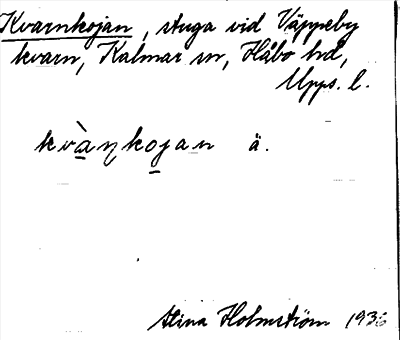 Kvarnkojan, stuga vid Väppeby
kvarn, Kalmar sn, Håbo hd,
Upps. l.
kvàŋkojan ä.
Stina Holmström 1936